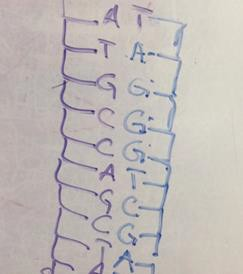 A T
T A
G G
C G
C G
A T
G C
C G
T A
A